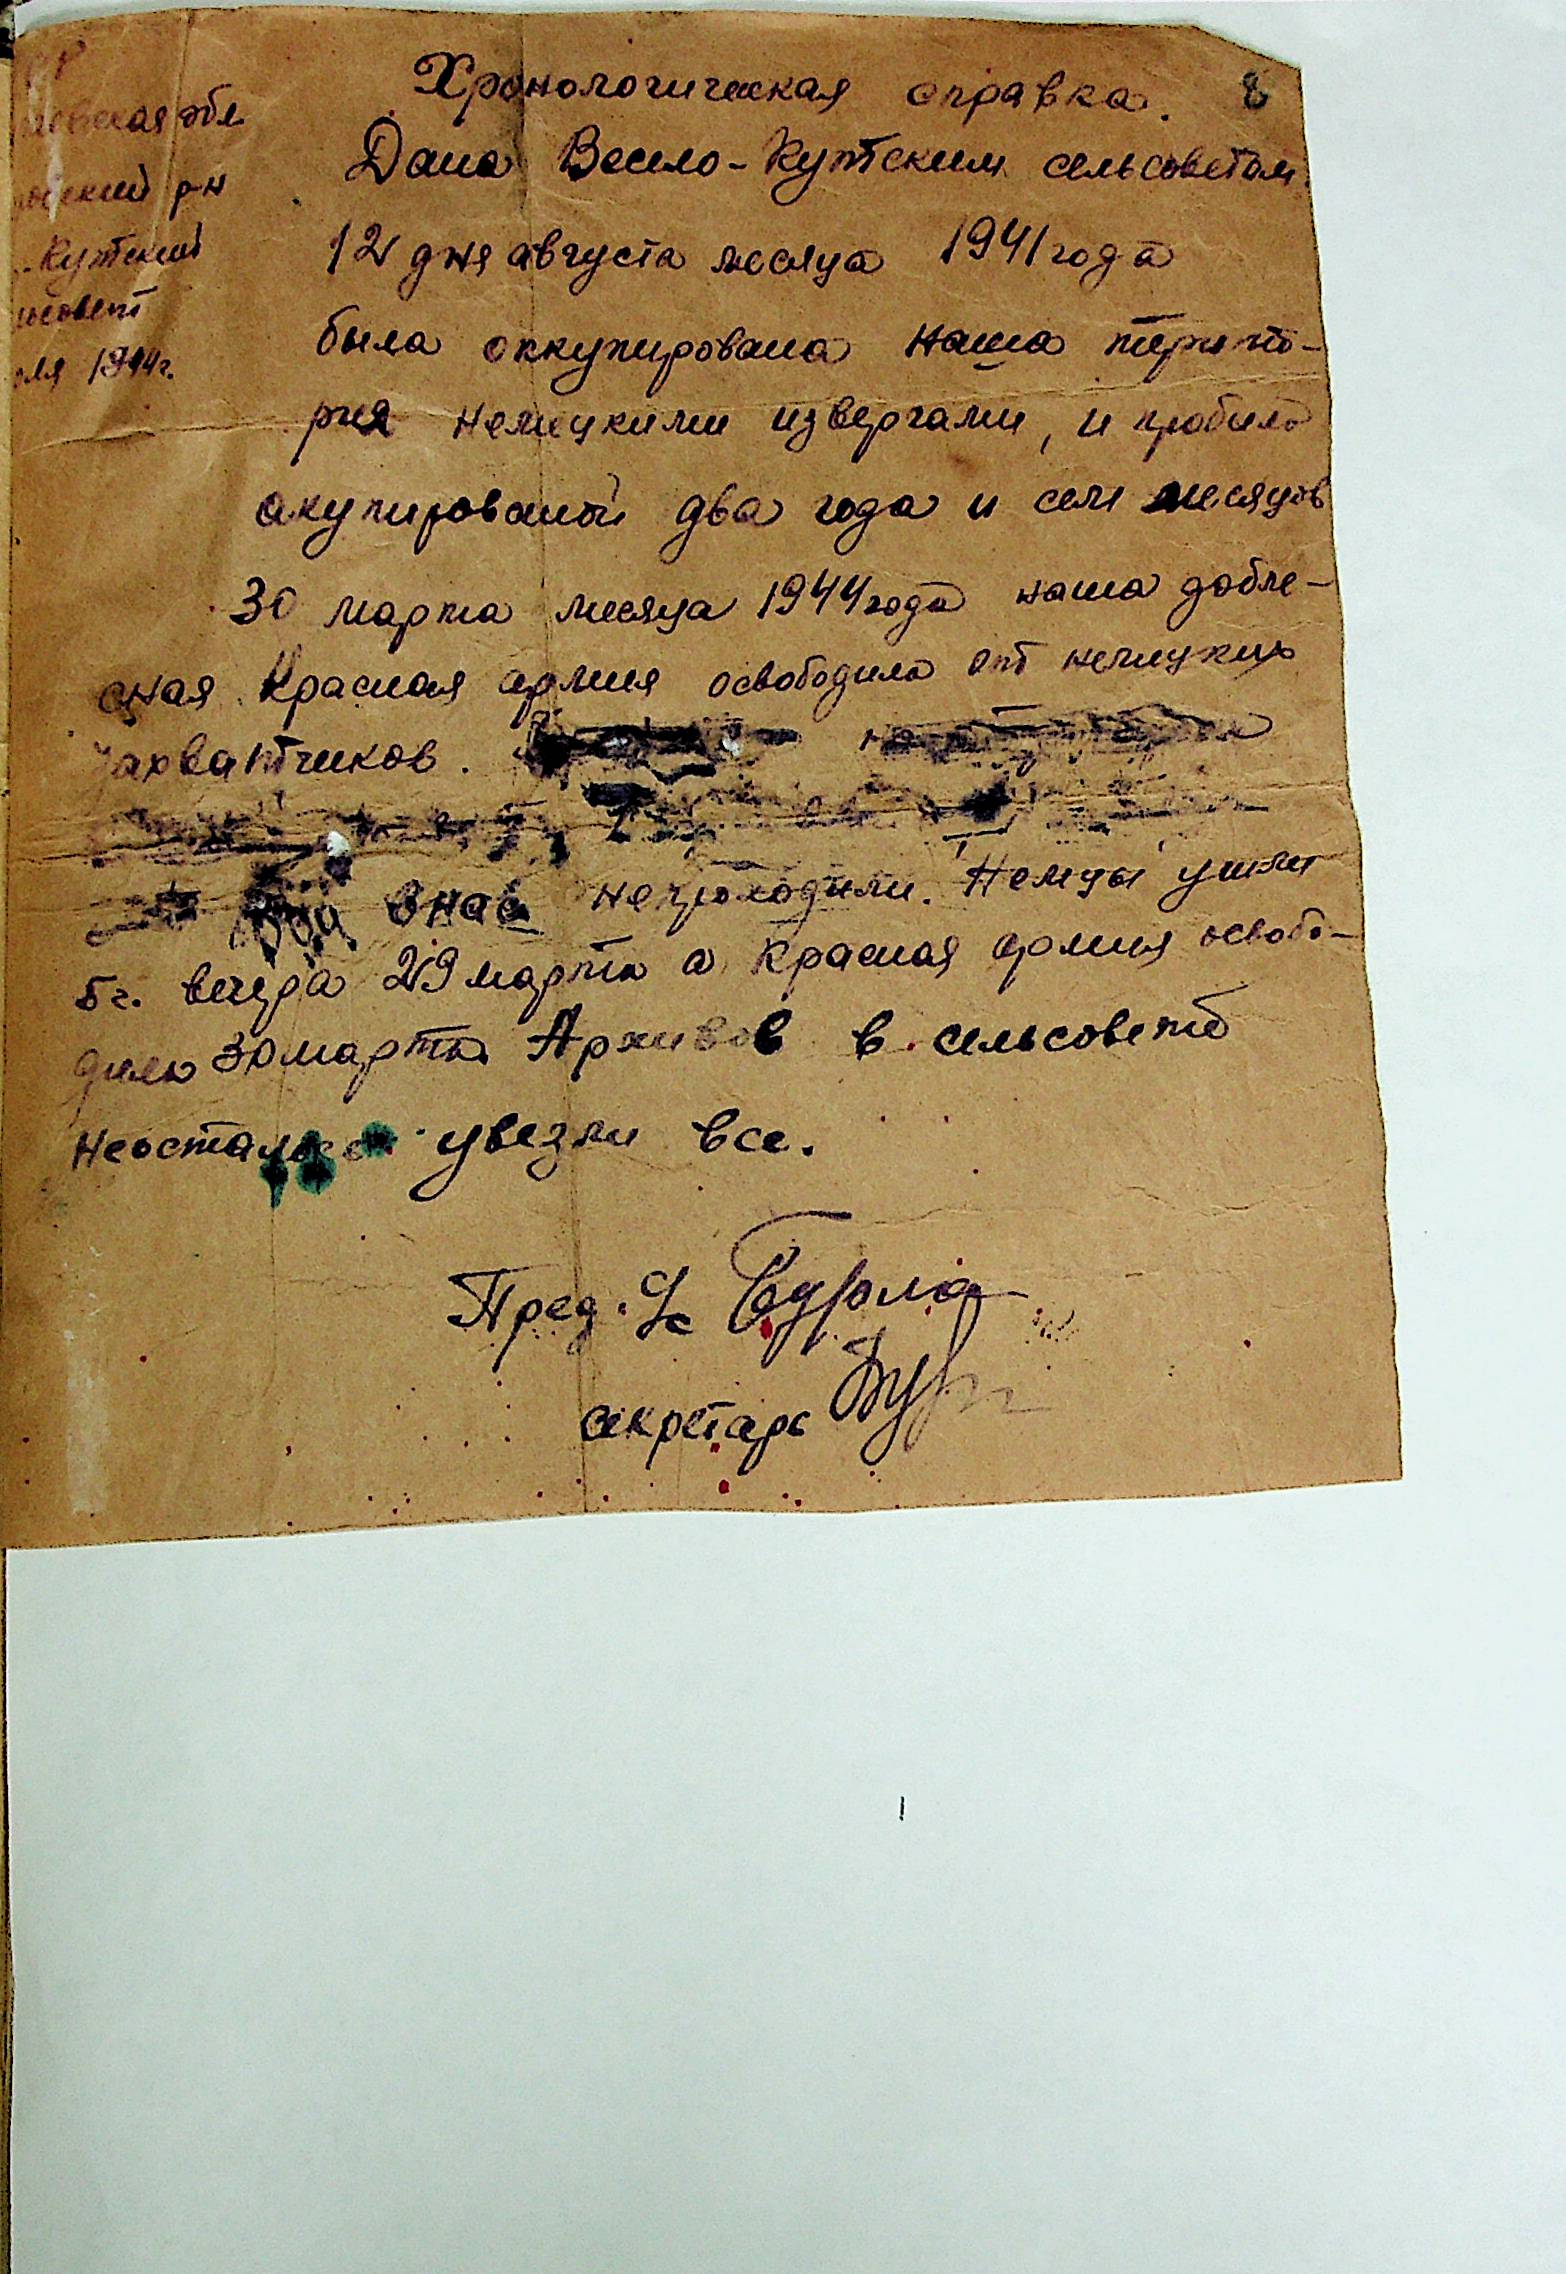 Хронологическая справка. 8
Дана Весело-Кутским сельсоветом.
12 дня августа месяца 1941 года
была оккупирована наша терито-
рия немецкими извергами, и пробила
окупированой два года и сем месяцов
30 марта месяца 1944 года наша добле-
сная Красная армия освободила от немецких
захватчиков.
бои внас непроходили. Немцы ушли
5 ч. вечера 29 марта а Красная армия освобо-
дила 30 марта Архивов в сельсовете
неосталось увезли все.
Пред. с/с
секретарь
обл
р-н
Кутский
1944г.